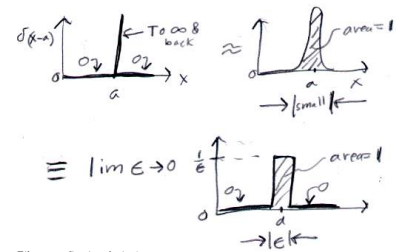 δ(x-a)
To ∞ & back
0
0
0
a
x
≈
area=1
0
a
x
→|small|←
≡ lim ϵ→0
1/ϵ
area=1
0
0
0
a
→|ϵ|←